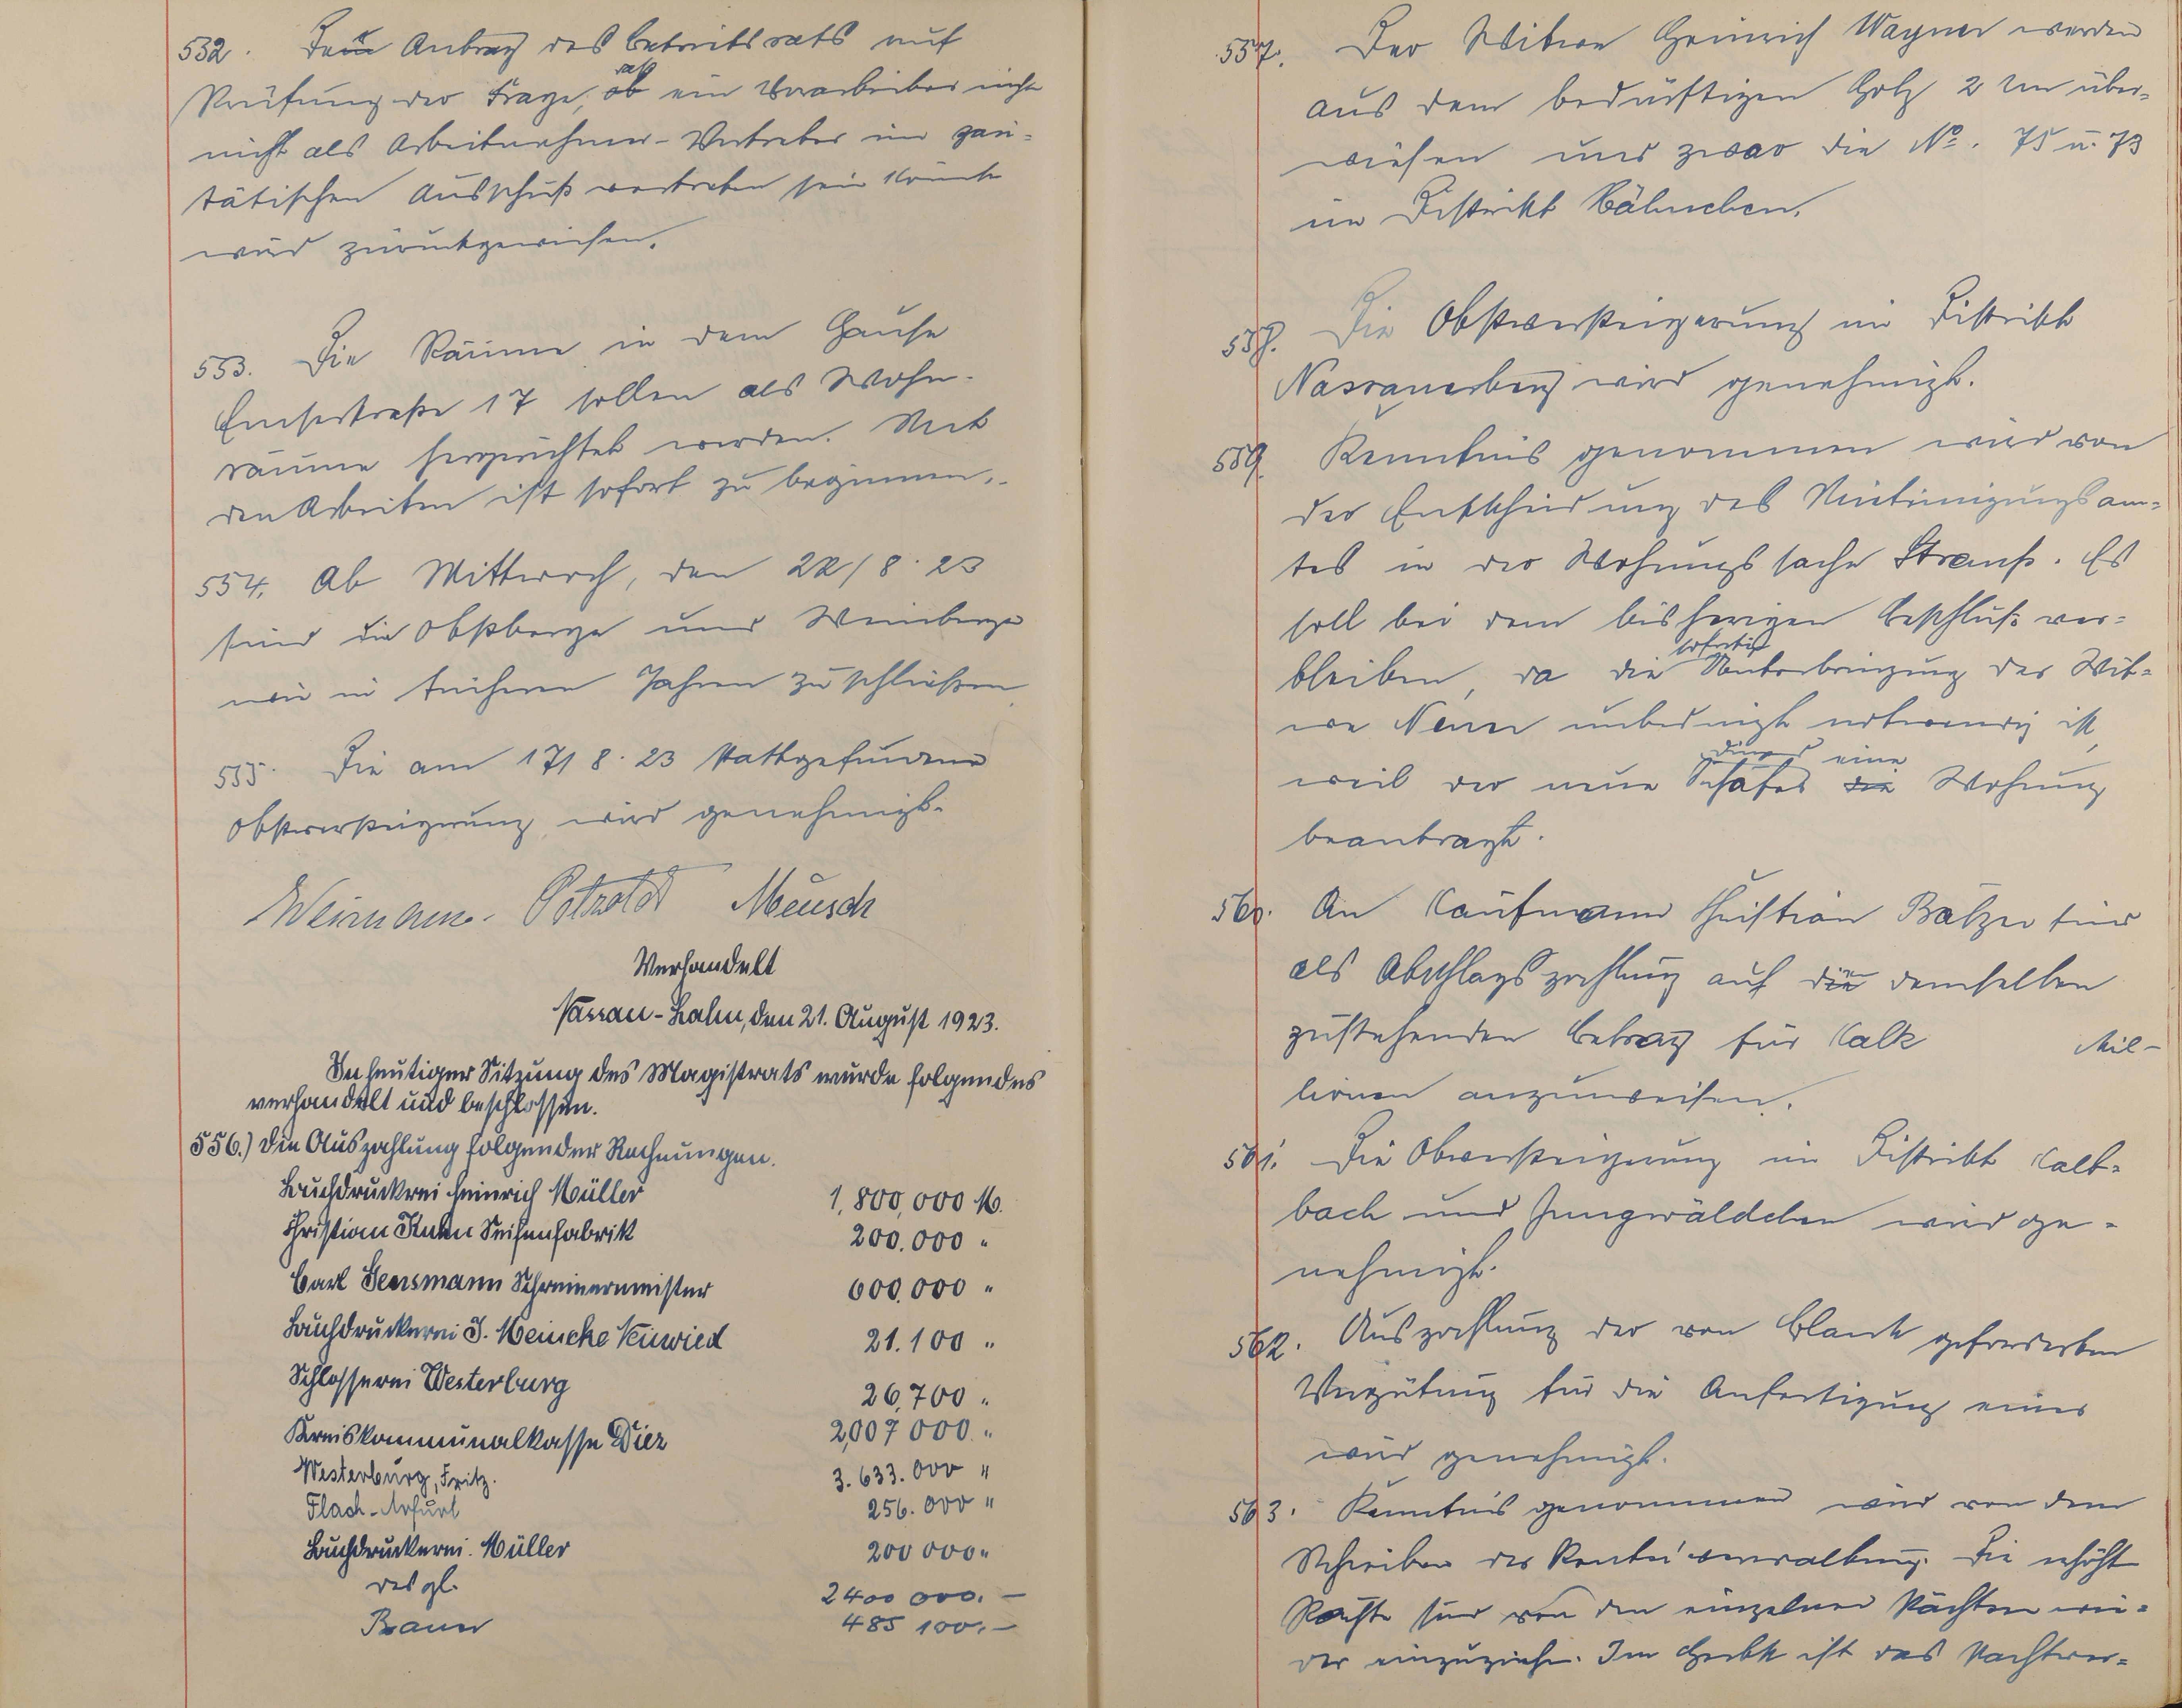 532. Dem Antrag des Betriebsrats auf
Prüfung der Frage, ob daß ein Vorarbeiter nicht
nicht als Arbeitnehmer-Vertreter im pari-
tätischen Ausschuß vertreten sein könnte
wird zurückgewiesen.
553. Die Räume in dem Hause
Emserstraße 17 sollen als Wohn-
räume hergerichtet werden. Mit
den Arbeiten ist sofort zu beginnen.
554. Ab Mittwoch, den 22/8.23
sind die Obstberge und Weinberge
wie in früheren Jahren zu schließen.
555. Die am 17/8.23 stattgefundene
Obstversteigerung wird genehmigt.
Meusch
Verhandelt
Nassau-Lahn, den 21. August 1923.
In heutiger Sitzung des Magistrats wurde folgendes
verhandelt und beschlossen.
556.) Die Auszahlung folgender Rechnungen.
Buchdruckrei Heinrich Müller 1,800,000 M.
Christian Kuhn Seifenfabrik 200.000 "
Carl Schreinermeister 600.000 "
Buchdruckerei J. Meincke Neuwied 21.100 "
Schlosserei Westerburg 26,700 "
Kreiskommunalkasse Diez 2,007 000 "
Westerburg, Fritz. 3.633.000 "
Flach-Erfurt 256.000 "
Buchdruckerei Müller 200 000 "
desgl. 2400 000.—
Braun 485 100.—
557. Der Witwe Heinrich Wagner werden
aus dem bedürftigen Holz 2 Rm über-
wiesen und zwar die No. 75 u. 73
im Distrikt Hähnchen.
558. Die Obstversteigerung im Distrikt
Nassauerberg wird genehmigt.
559. Kenntnis genommen wird von
der Entscheidung des Mieteinigungsam-
tes in der Wohnungssache Strauß. Es
soll bei dem bisherigen Beschluß ver-
bleiben, da die sofortige Unterbringung der Wit-
we unbedingt notwendig ist,
weil der neue Schäfer die eine Wohnung
beantragt.
560. An Kaufmann Christian Balzer sind
als Abschlagszahlung auf die demselben
zustehenden Betrag für Kalk Mil-
lionen anzuweisen.
561. Die Obstversteigerung im Distrikt Kalt-
bach und Jungwäldchen wird ge-
nehmigt.
562. Auszahlung der von Blank geforderten
Vergütung für die Anfertigung eines
wird genehmigt.
563. Kenntnis genommen wird von dem
Schreiben der Rentei verwaltung. Die erhöht
Pachte sind von den einzelnen Pächtern wie-
der einzuziehen. Im Herbst ist das Pachtver-